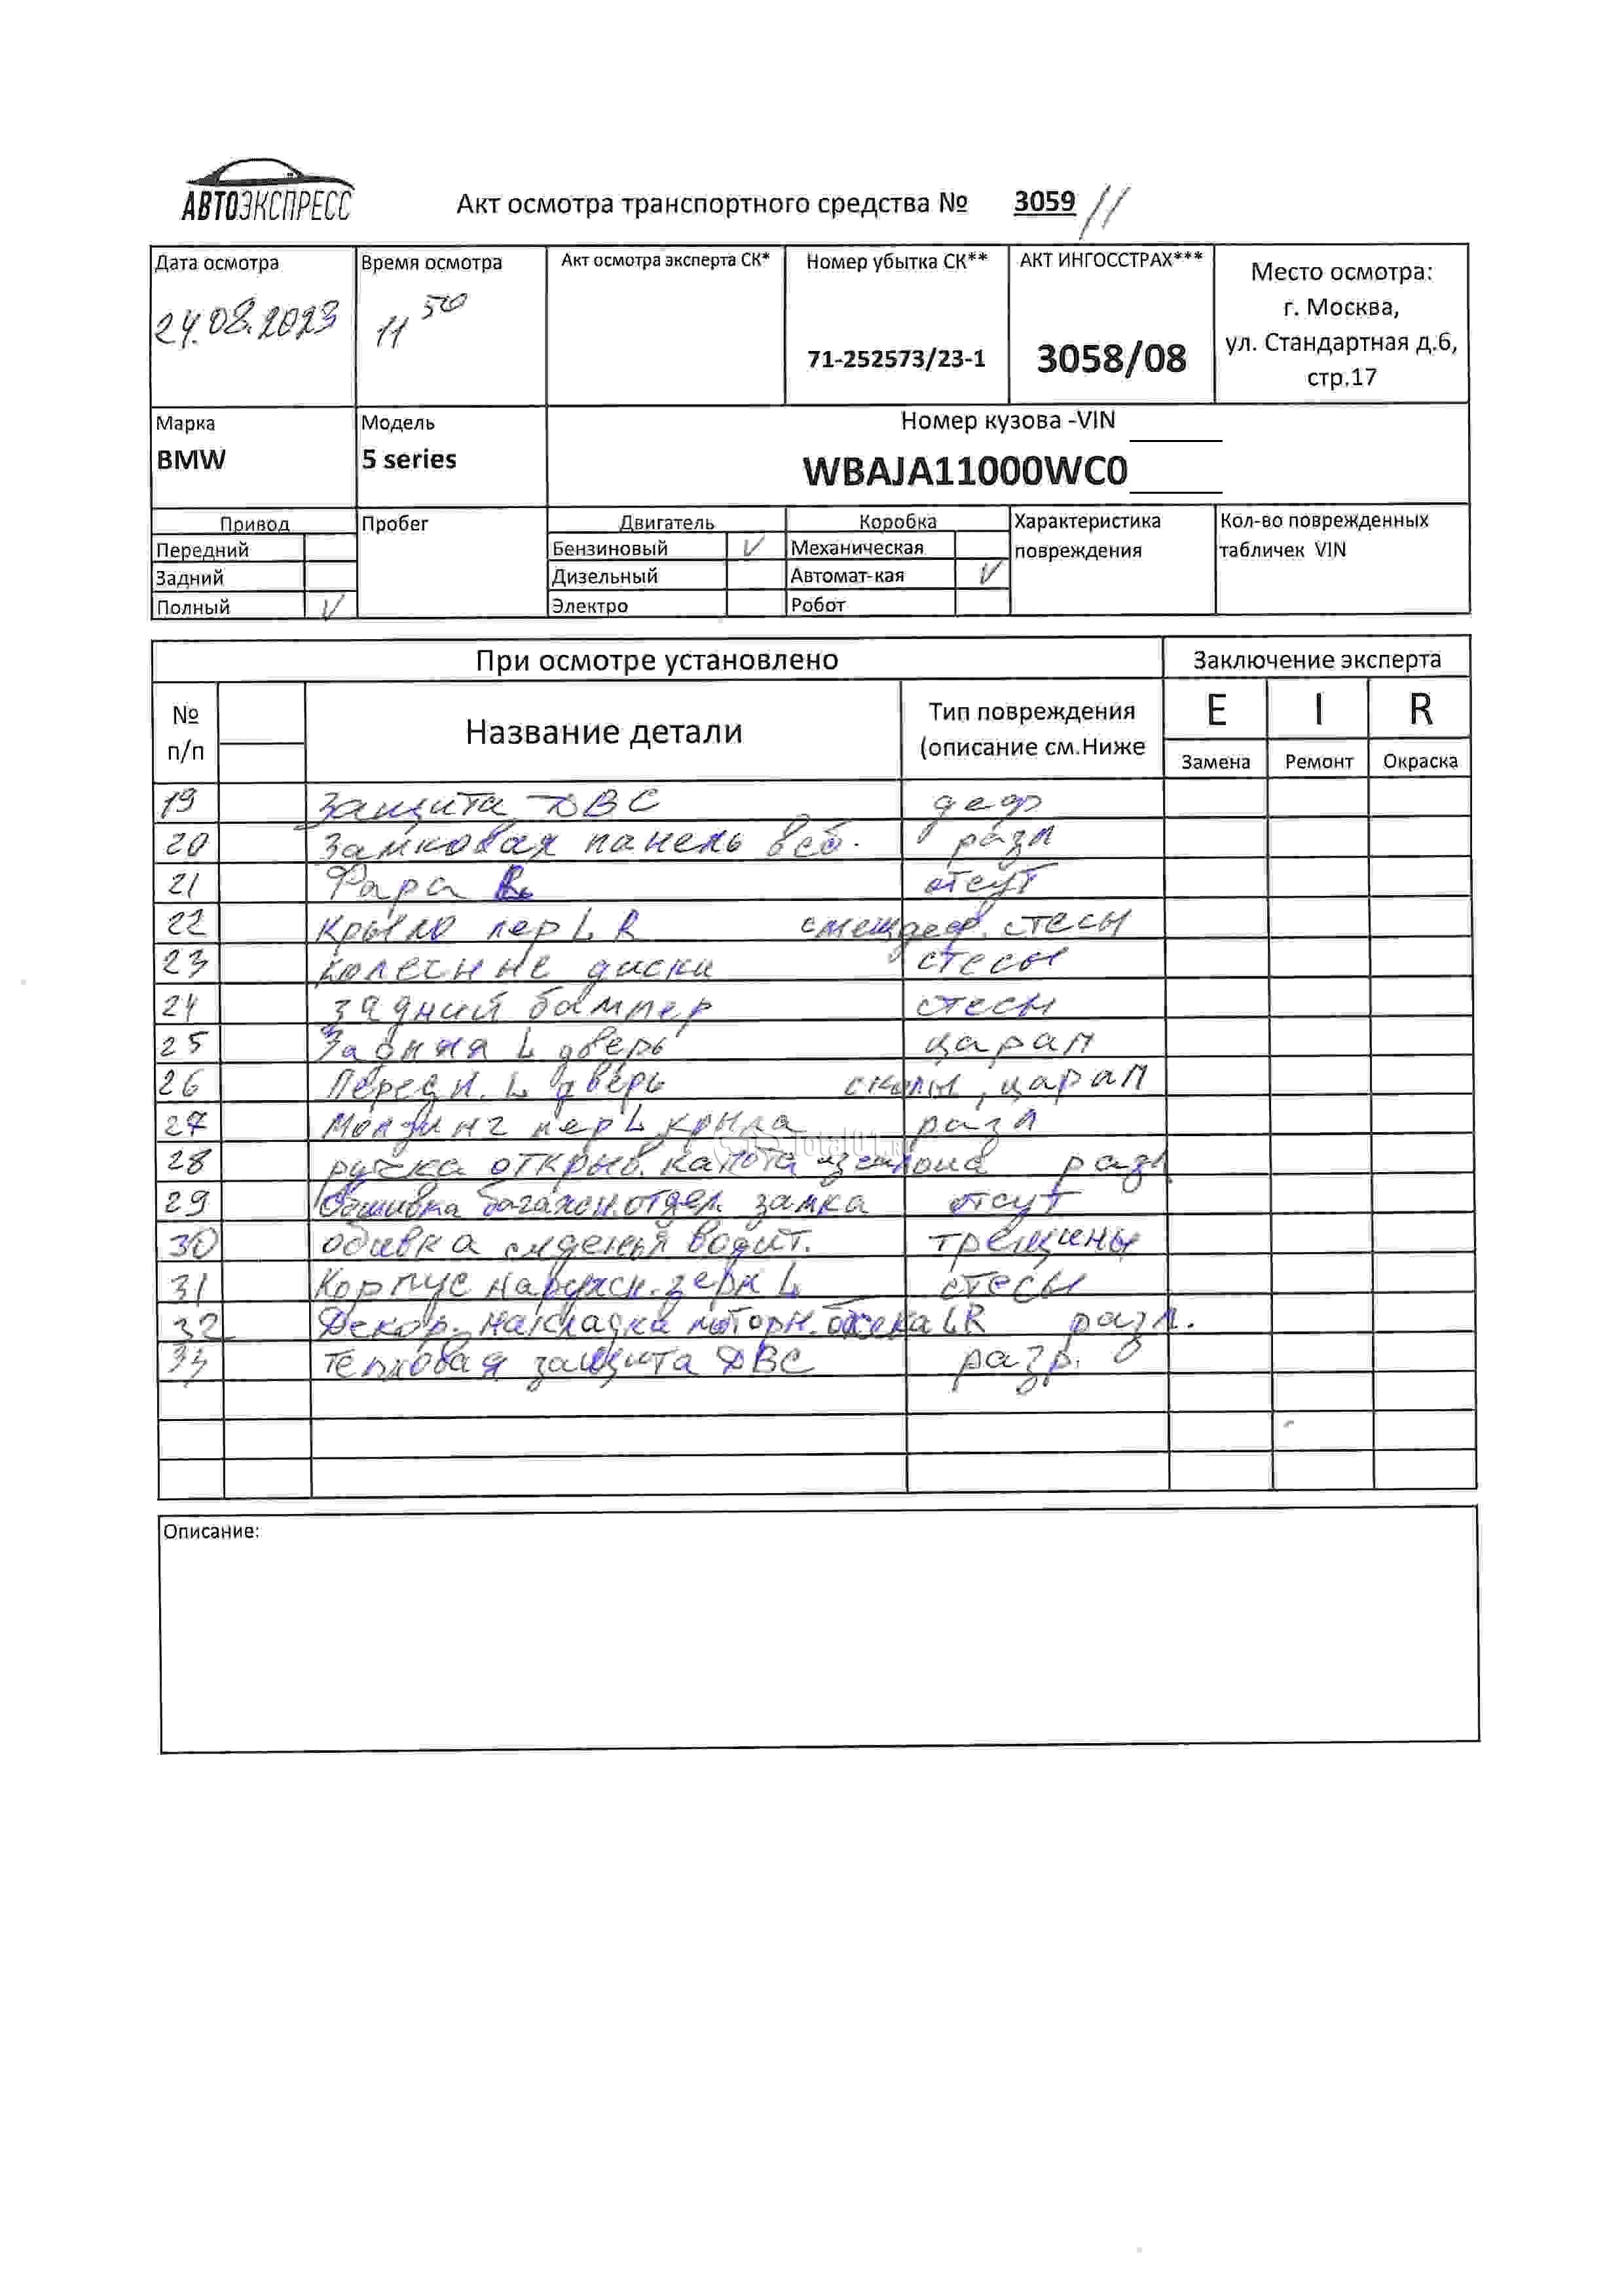 АВТОЭКСПРЕСС
Акт осмотра транспортного средства № 3059 //
Дата осмотра
24.08.2023
Время осмотра
11 50
Акт осмотра эксперта СК*
Номер убытка СК**
71-252573/23-1
АКТ ИНГОССТРАХ***
3058/08
Место осмотра:
г. Москва,
ул. Стандартная д.6,
стр.17
Марка
BMW
Модель
5 series
Номер кузова -VIN
WBAJA11000WC0
Привод
Передний
Задний
Полный V
Пробег
Двигатель
Бензиновый V
Дизельный
Электро
Коробка
Механическая
Автомат-кая V
Робот
Характеристика
повреждения
Кол-во поврежденных
табличек VIN
При осмотре установлено
Заключение эксперта
№
п/п
Название детали
Тип повреждения
(описание см.Ниже
E I R
Замена Ремонт Окраска
19 Защита ДВС деф
20 Замковая панель в сб. разл
21 Фара отсут
22 Крыло пер L R смещ деф. стесы
23 Колесные диски стесы
24 Задний бампер стесы
25 Задняя L дверь царап
26 Передн. L дверь сколы, царап
27 Молдинг пер L крыла разл
28 ручка открыв. капота разл
29 Обшивка багажн. отдел. замка отсут
30 обивка сиденья водит. трещины
31 Корпус наружн. зерк L стесы
32 Декор. накладка моторн. отсека LR разл.
33 тепловая защита ДВС разр.
Описание: